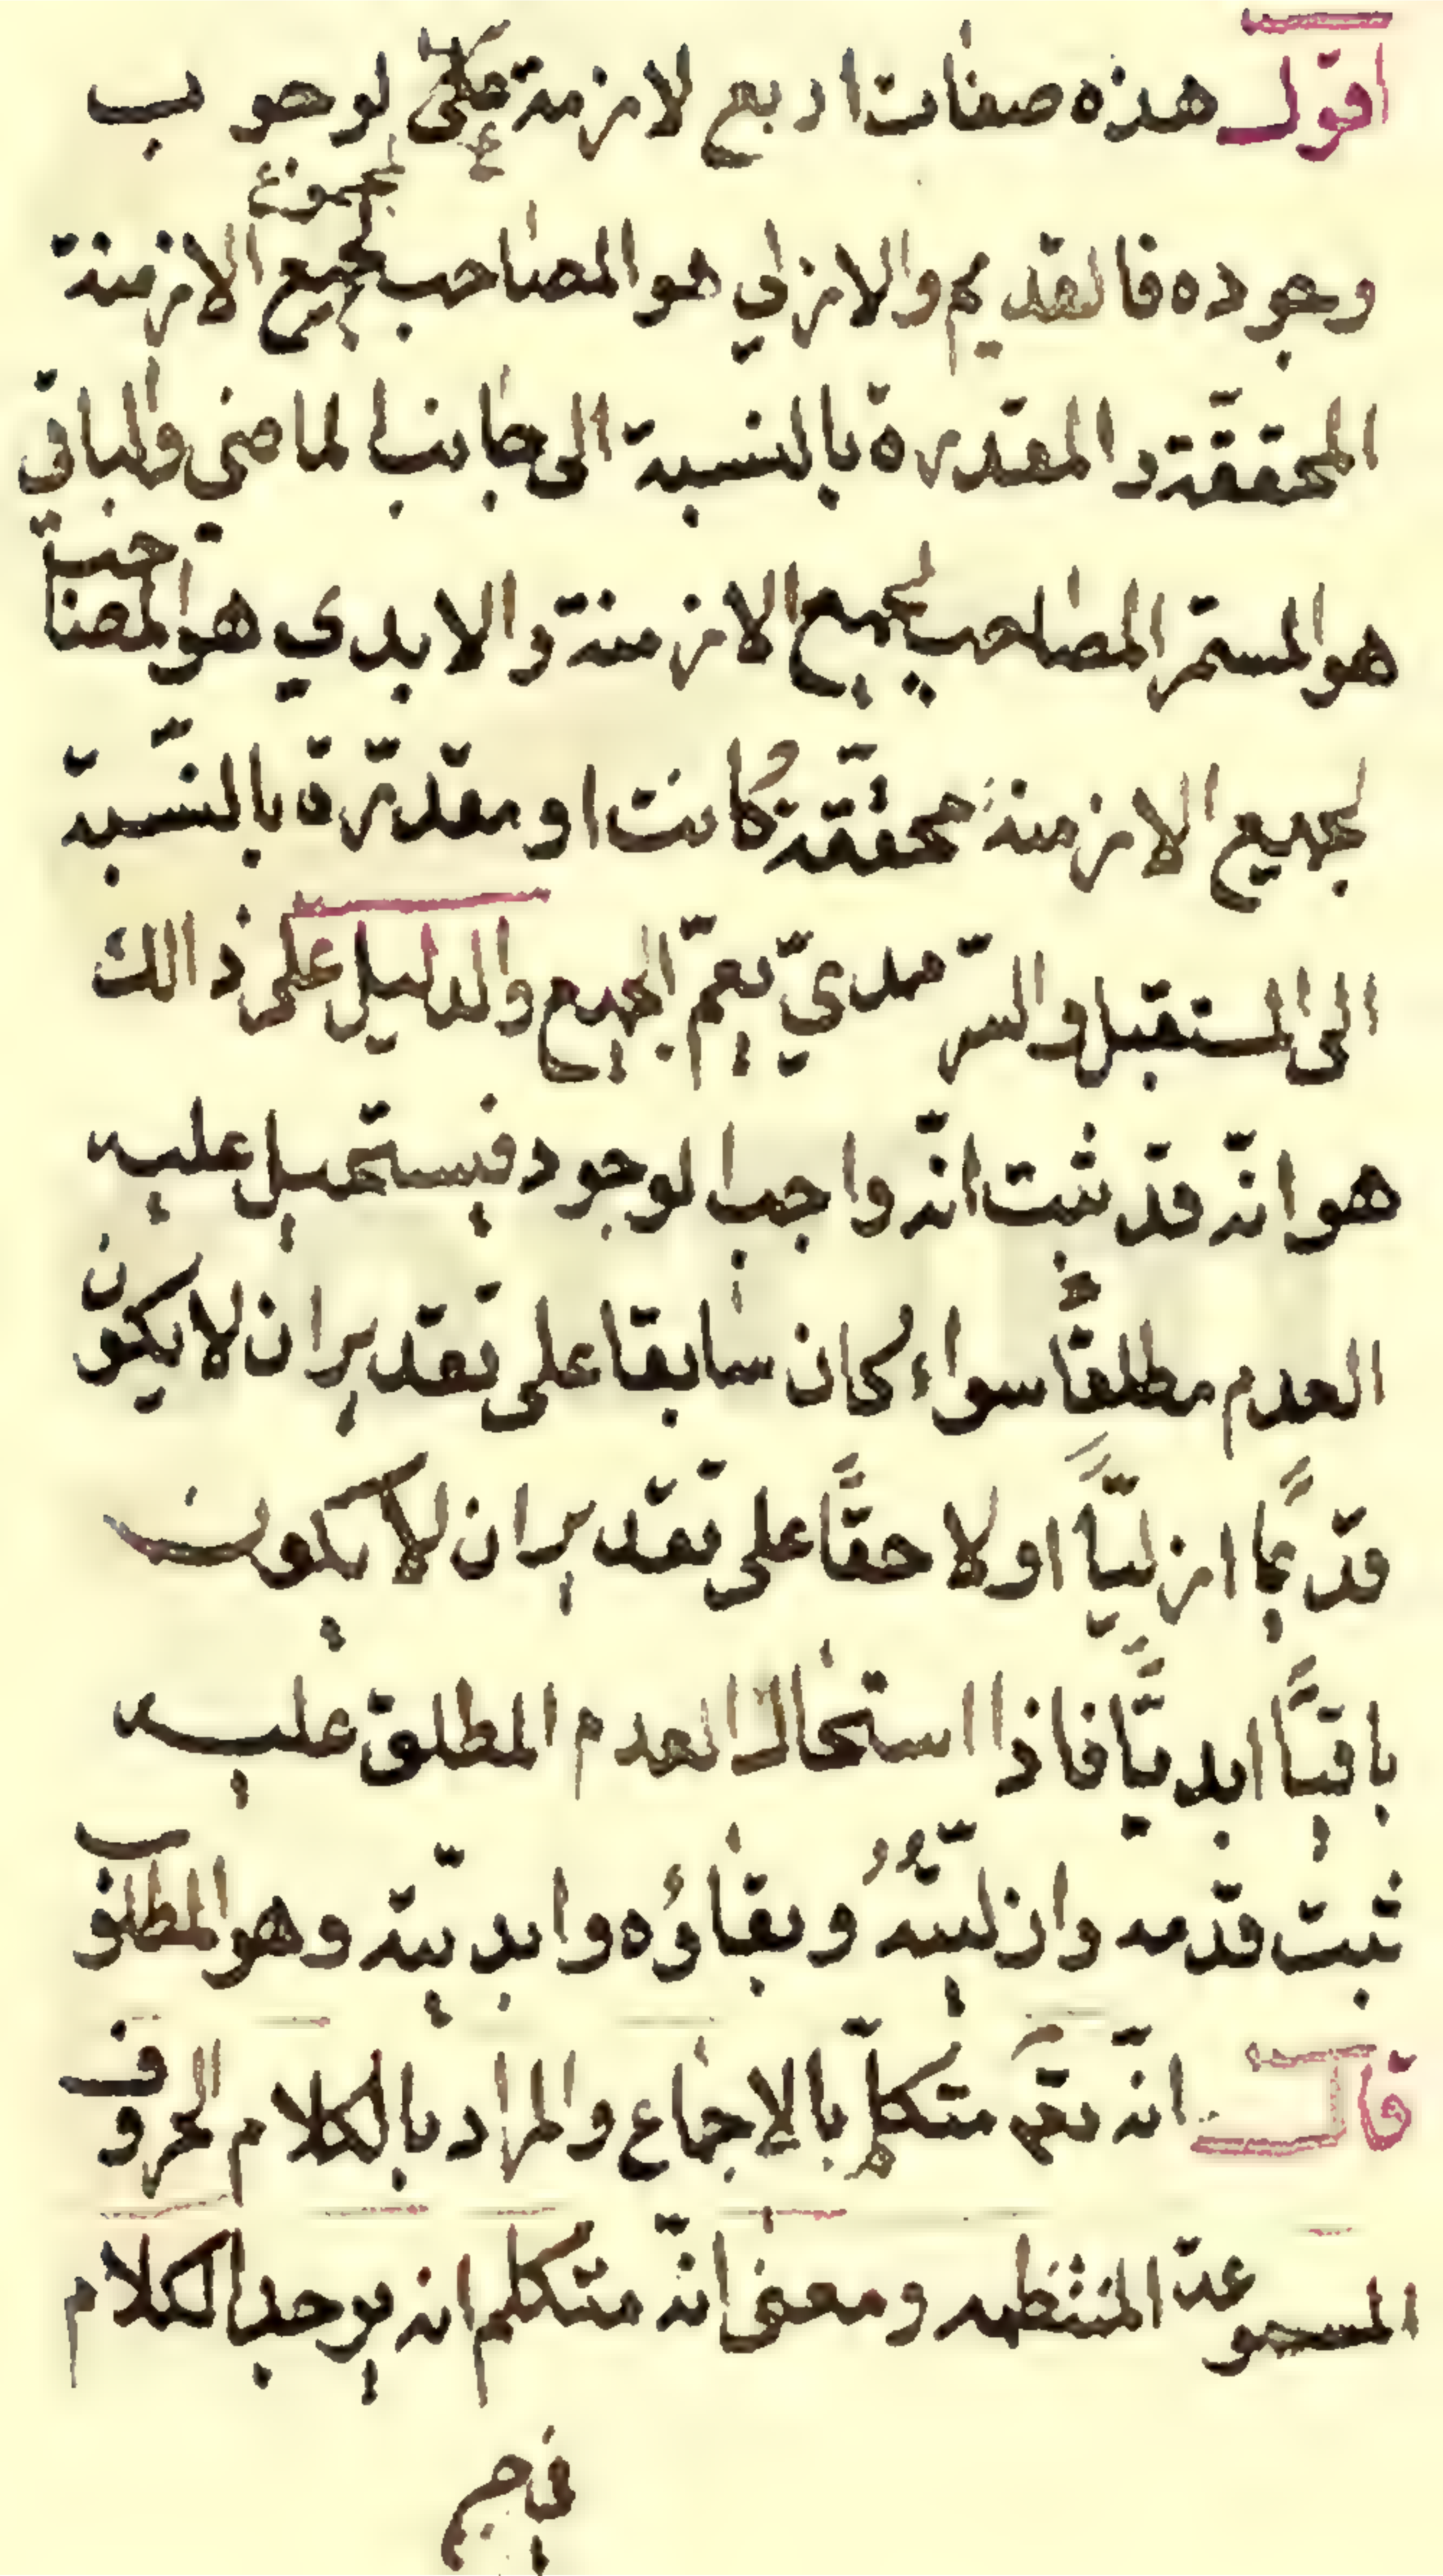 اقول هذه صفات اربع لازمة لوجوب
لمجموع
وجوده فالقديم والازلي هو المصاحب لجميع الازمنة
المحققة والمقدرة بالنسبة الى جانب الماضي والباقي
هو المستمر المصاحب لجميع الازمنة والابدي هو المصاحب
لجميع الازمنة محققة كانت او مقدّرة بالنّسبة
الى المستقبل والسّرمديّ يعمّ الجميع والدليل على ذالك
هو انّه قد ثبت انّه واجب الوجود فيستحيل عليه
العدم مطلقًا سواء كان سابقا على تقدير ان لا يكون
قديمًا ازليًّا او لاحقًا على تقدير ان لا يكون
باقيًا ابديًّا فاذا استحال العدم المطلق عليه
ثبت قدمه وازليّته وبقاؤه وابديّته وهو المطلوب
قال انّه تعم متكلّم بالإجماع والمراد بالكلام الحروف
المسموعة المنتظمه ومعنى انّه متكلم انه يوجد الكلام
في جم